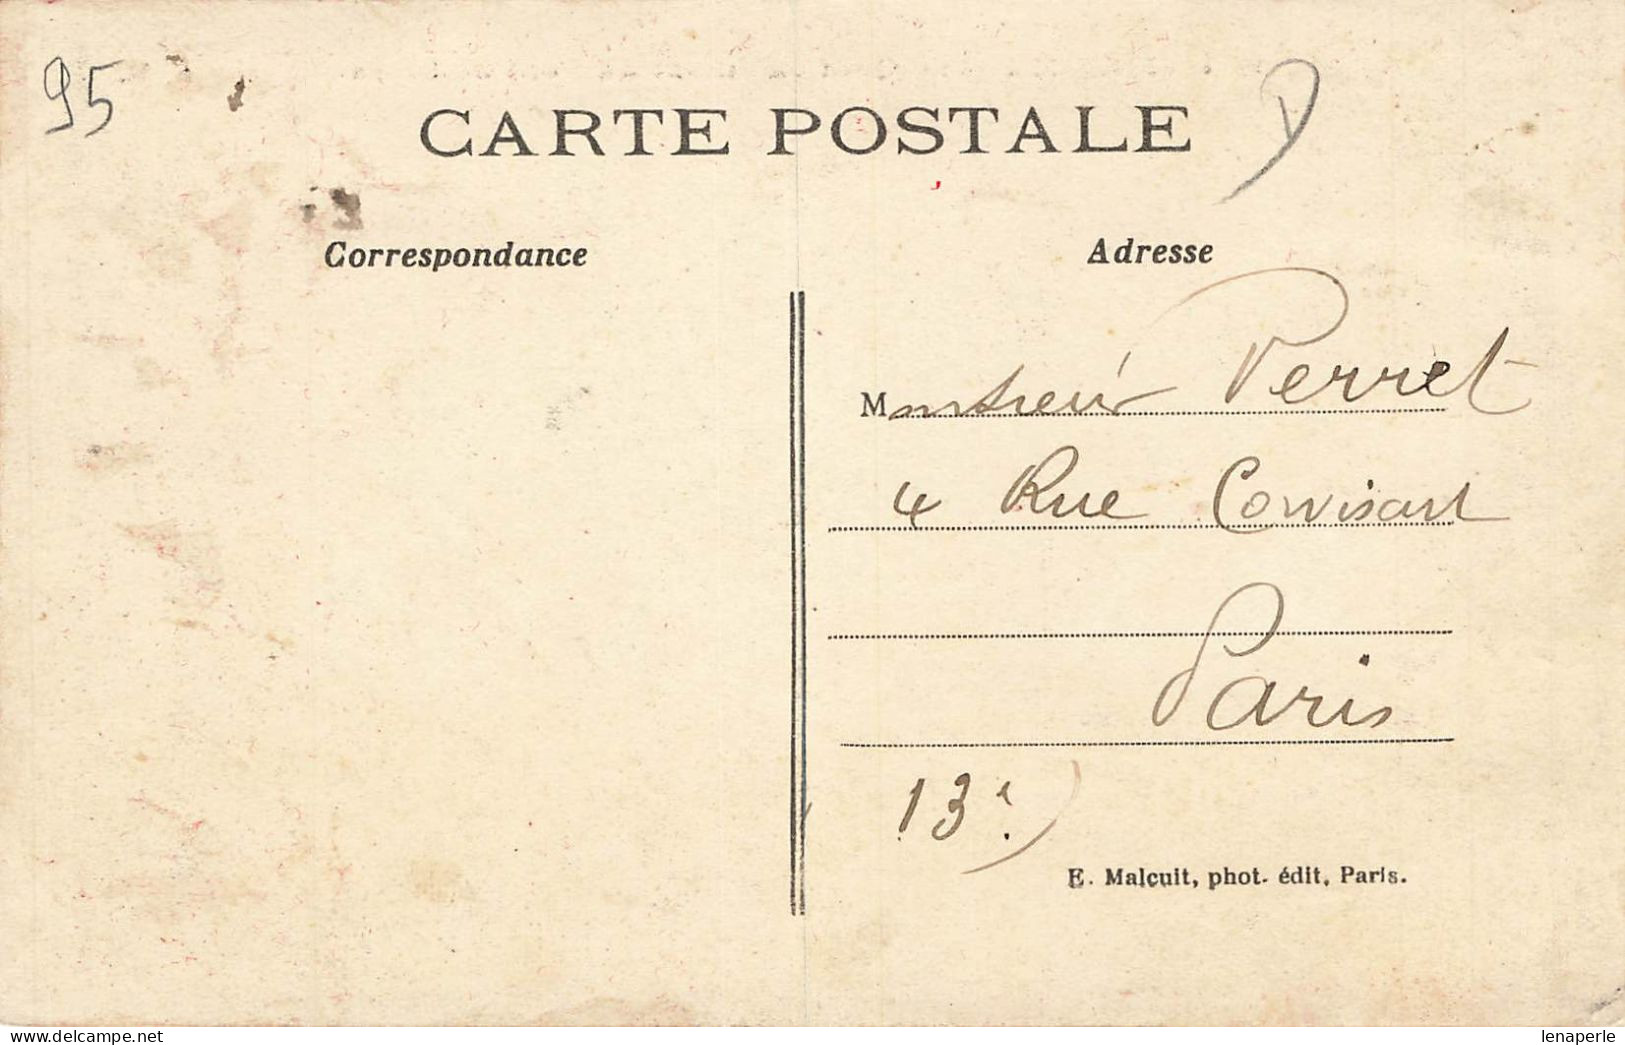 95
CARTE POSTALE
Correspondance
Adresse
Monsieur Perret
4 Rue Corvisart
Paris
13e
E. Malcuit, phot. édit, Paris.
www.delcampe.net
lenaperle